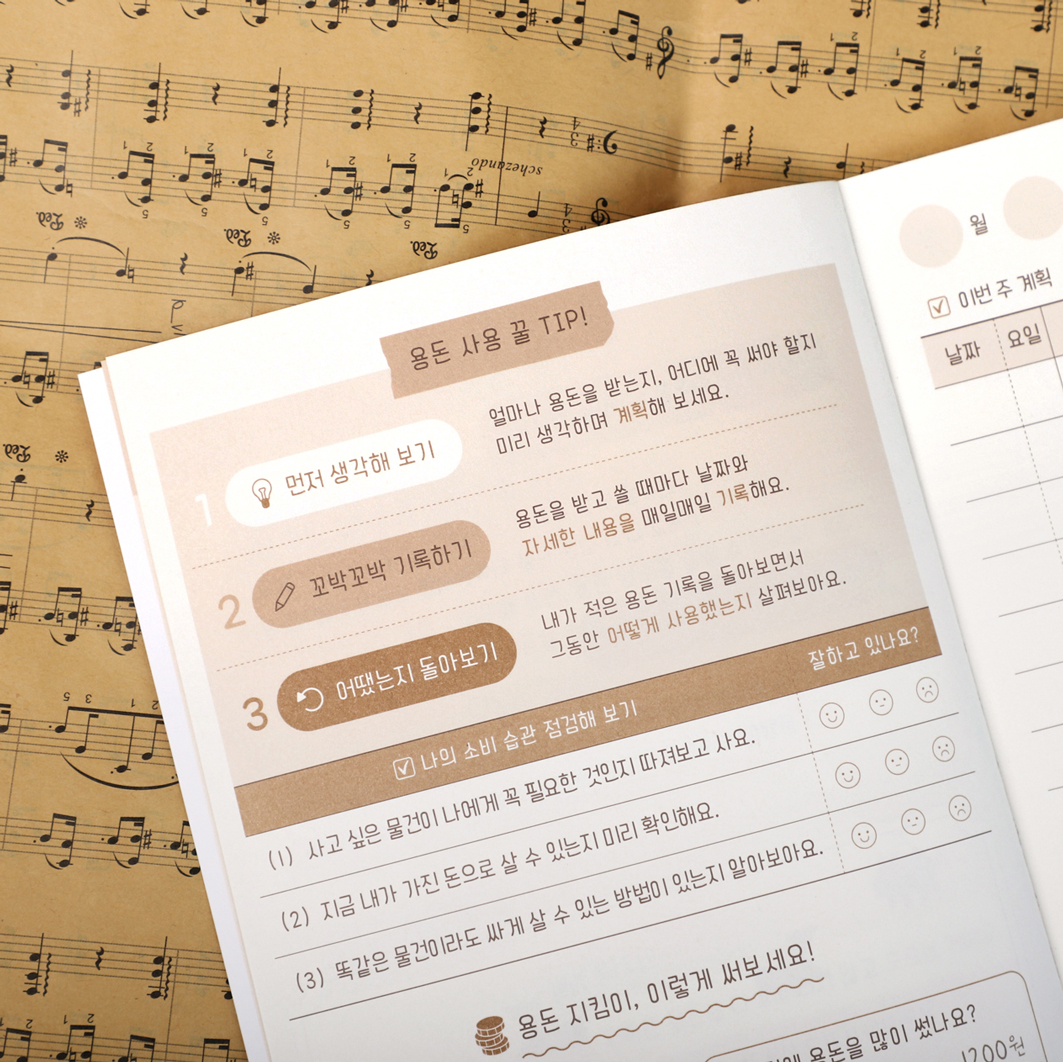 scherzando
용돈 사용 꿀 TIP!
1 먼저 생각해 보기
얼마나 용돈을 받는지, 어디에 꼭 써야 할지
미리 생각하며 계획해 보세요.
2 꼬박꼬박 기록하기
용돈을 받고 쓸 때마다 날짜와
자세한 내용을 매일매일 기록해요.
3 어땠는지 돌아보기
내가 적은 용돈 기록을 돌아보면서
그동안 어떻게 사용했는지 살펴보아요.
나의 소비 습관 점검해 보기 잘하고 있나요?
(1) 사고 싶은 물건이 나에게 꼭 필요한 것인지 따져보고 사요.
(2) 지금 내가 가진 돈으로 살 수 있는지 미리 확인해요.
(3) 똑같은 물건이라도 싸게 살 수 있는 방법이 있는지 알아보아요.
용돈 지킴이, 이렇게 써보세요!
용돈을 많이 썼나요?
1200원
월
이번 주 계획
날짜 요일